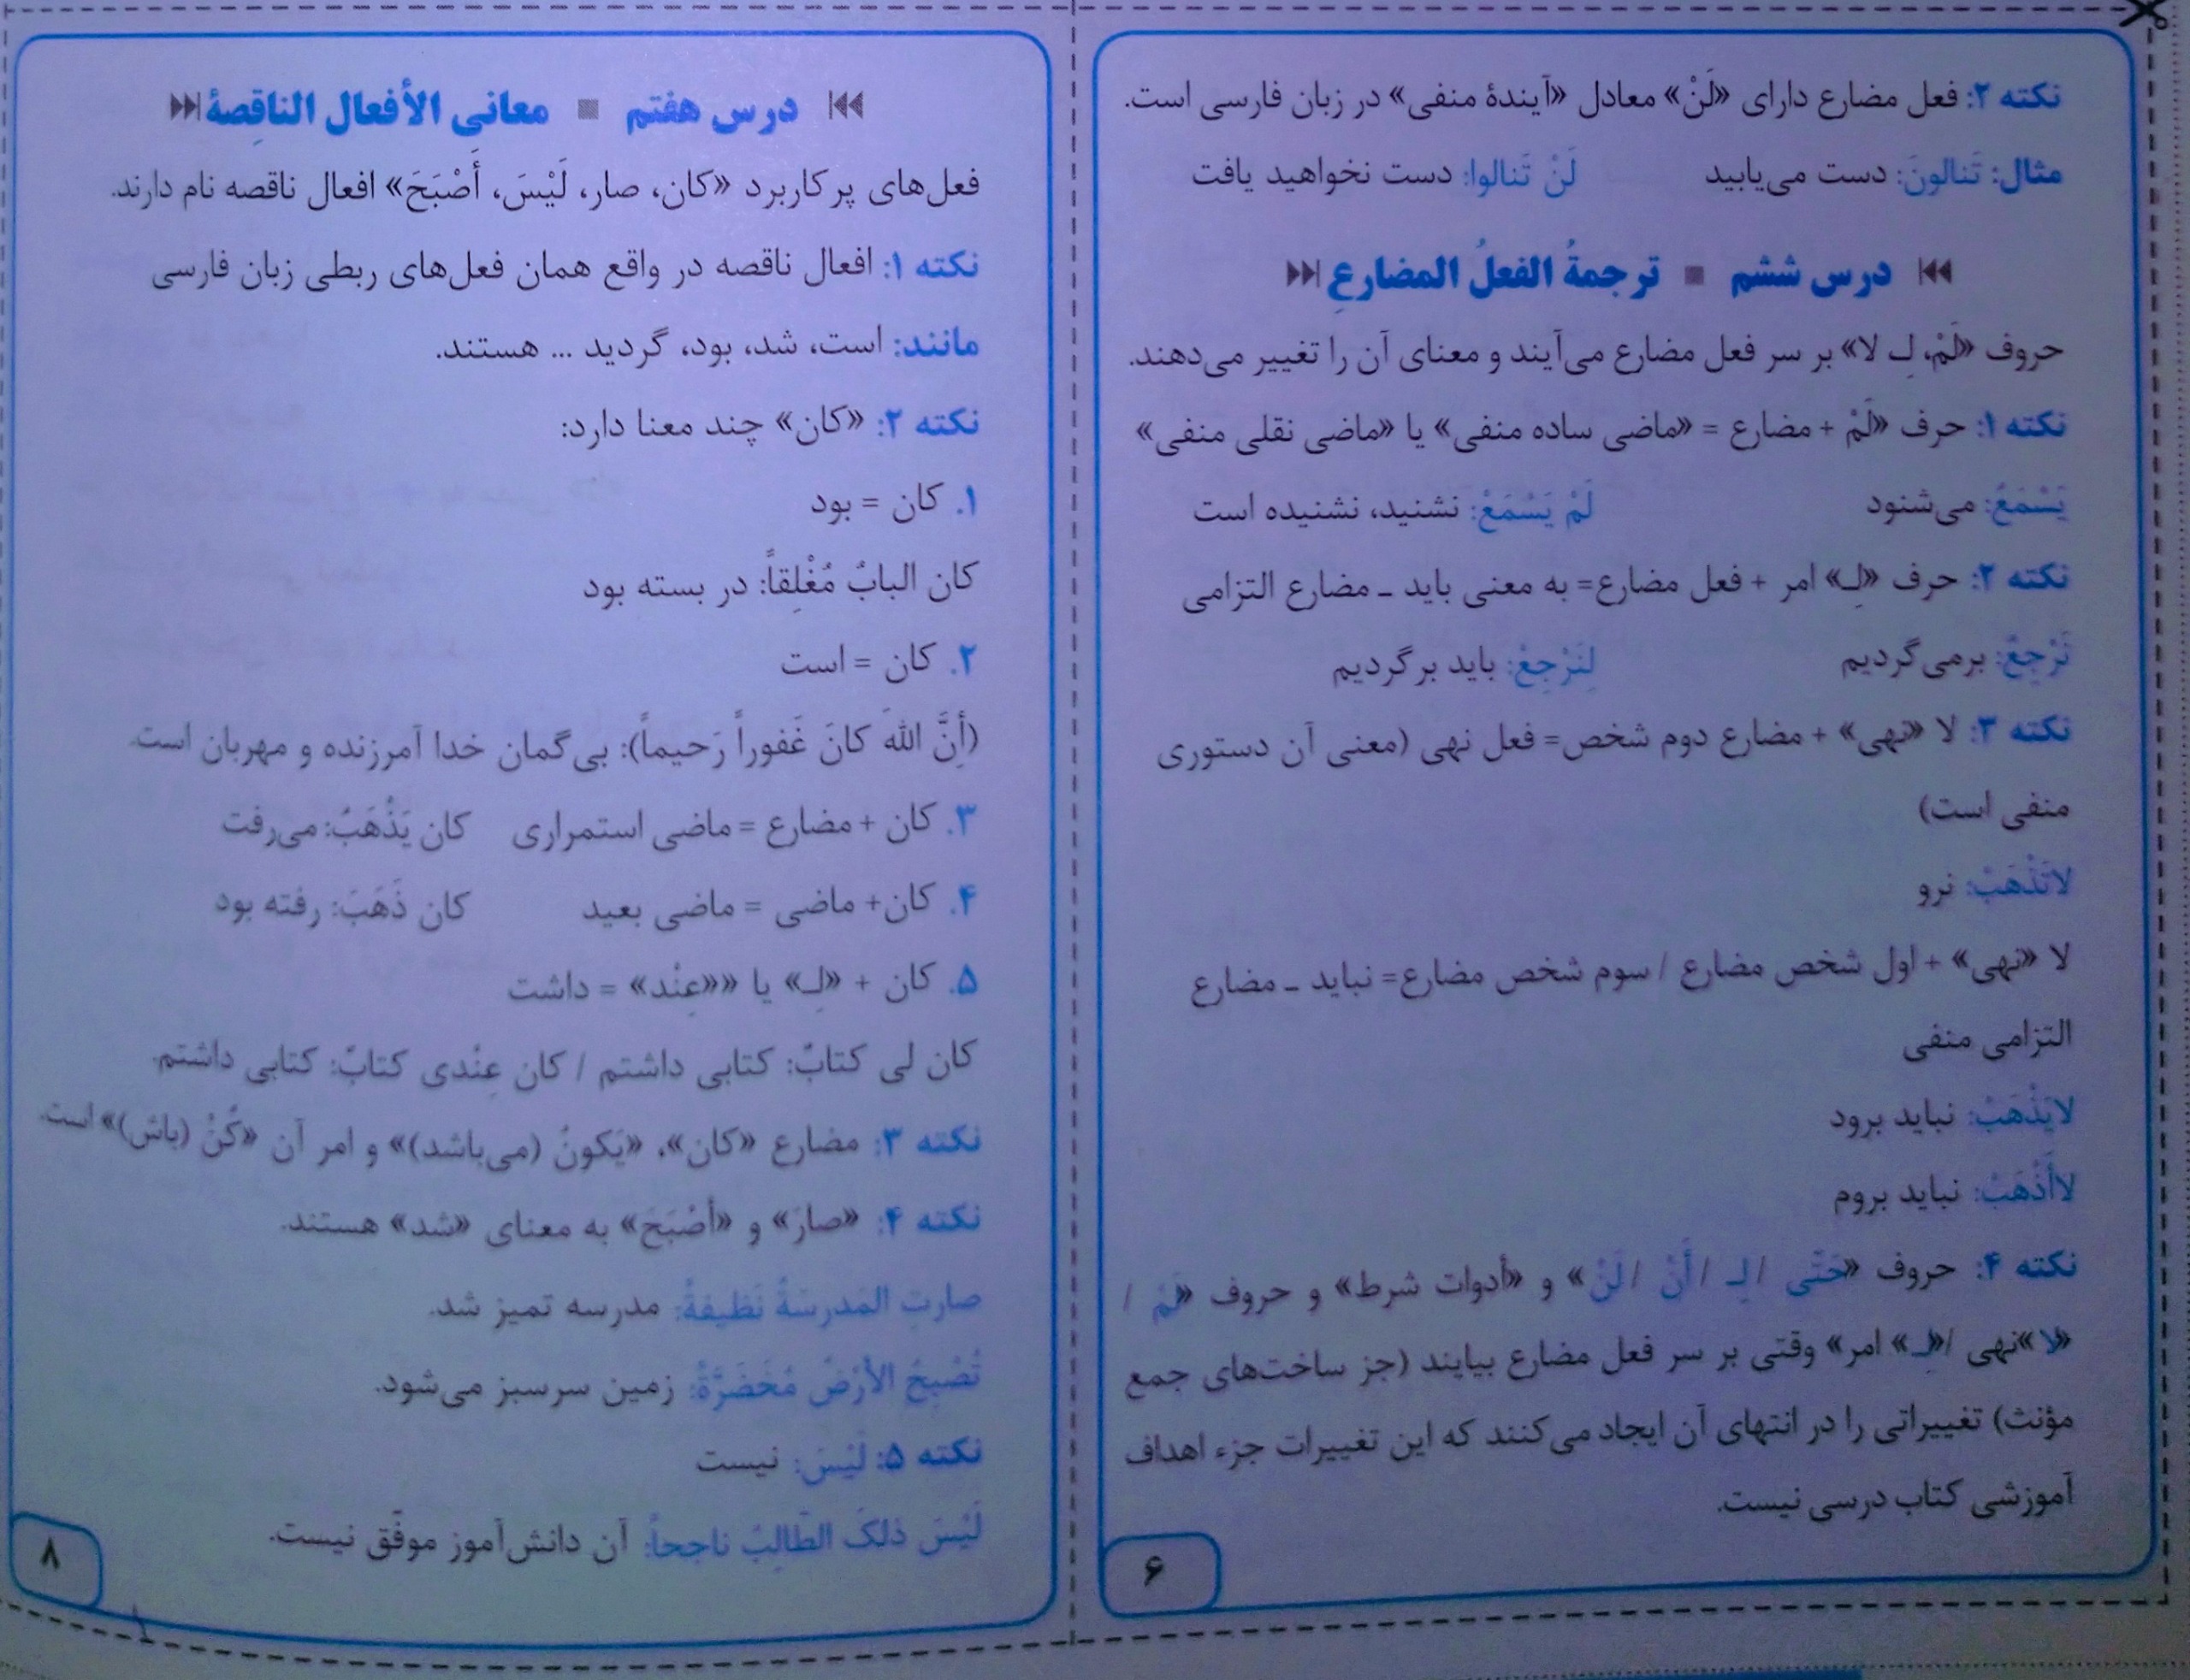 نکته ۲: فعل مضارع دارای «لَنْ» معادل «آیندهٔ منفی» در زبان فارسی است.
مثال: تَنالونَ: دست می‌یابید لَنْ تَنالوا: دست نخواهید یافت
درس ششم ■ ترجمةُ الفعلُ المضارعِ
حروف «لَمْ، لِـ لا» بر سر فعل مضارع می‌آیند و معنای آن را تغییر می‌دهند.
نکته ۱: حرف «لَمْ + مضارع = «ماضی ساده منفی» یا «ماضی نقلی منفی»
یَسْمَعُ: می‌شنود لَمْ یَسْمَعْ: نشنید، نشنیده است
نکته ۲: حرف «لِـ» امر + فعل مضارع= به معنی باید ـ مضارع التزامی
نَرْجِعُ: برمی‌گردیم لِنَرْجِعْ: باید برگردیم
نکته ۳: لا «نهی» + مضارع دوم شخص= فعل نهی (معنی آن دستوری
منفی است)
لاتَذْهَبْ: نرو
لا «نهی» + اول شخص مضارع / سوم شخص مضارع= نباید ـ مضارع
التزامی منفی
لایَذْهَبْ: نباید برود
لاأَذْهَبْ: نباید بروم
نکته ۴: حروف «حَتّی / لِـ / أَنْ / لَنْ» و «أدوات شرط» و حروف «لَمْ /
«لا»نهی /«لِـ» امر» وقتی بر سر فعل مضارع بیایند (جز ساخت‌های جمع
مؤنث) تغییراتی را در انتهای آن ایجاد می‌کنند که این تغییرات جزء اهداف
آموزشی کتاب درسی نیست.
۶
درس هفتم ■ معانی الأفعال الناقِصة
فعل‌های پرکاربرد «کان، صار، لَیْسَ، أَصْبَحَ» افعال ناقصه نام دارند.
نکته ۱: افعال ناقصه در واقع همان فعل‌های ربطی زبان فارسی
مانند: است، شد، بود، گردید ... هستند.
نکته ۲: «کان» چند معنا دارد:
۱. کان = بود
کان البابُ مُغْلِقاً: در بسته بود
۲. کان = است
(أِنَّ اللهَ کانَ غَفوراً رَحیماً): بی‌گمان خدا آمرزنده و مهربان است.
۳. کان + مضارع = ماضی استمراری کان یَذْهَبُ: می‌رفت
۴. کان+ ماضی = ماضی بعید کان ذَهَبَ: رفته بود
۵. کان + «لِـ» یا ««عِنْد» = داشت
کان لی کتابٌ: کتابی داشتم / کان عِنْدی کتابٌ: کتابی داشتم.
نکته ۳: مضارع «کان»، «یَکونُ (می‌باشد)» و امر آن «کُنْ (باش)» است.
نکته ۴: «صارَ» و «أَصْبَحَ» به معنای «شد» هستند.
صارتِ المَدرسَةُ نَظیفةً: مدرسه تمیز شد.
تُصْبِحُ الأرْضُ مُخْضَرَّةً: زمین سرسبز می‌شود.
نکته ۵: لَیْسَ: نیست
لَیْسَ ذلکَ الطّالِبُ ناجحاً: آن دانش‌آموز موفّق نیست.
۸